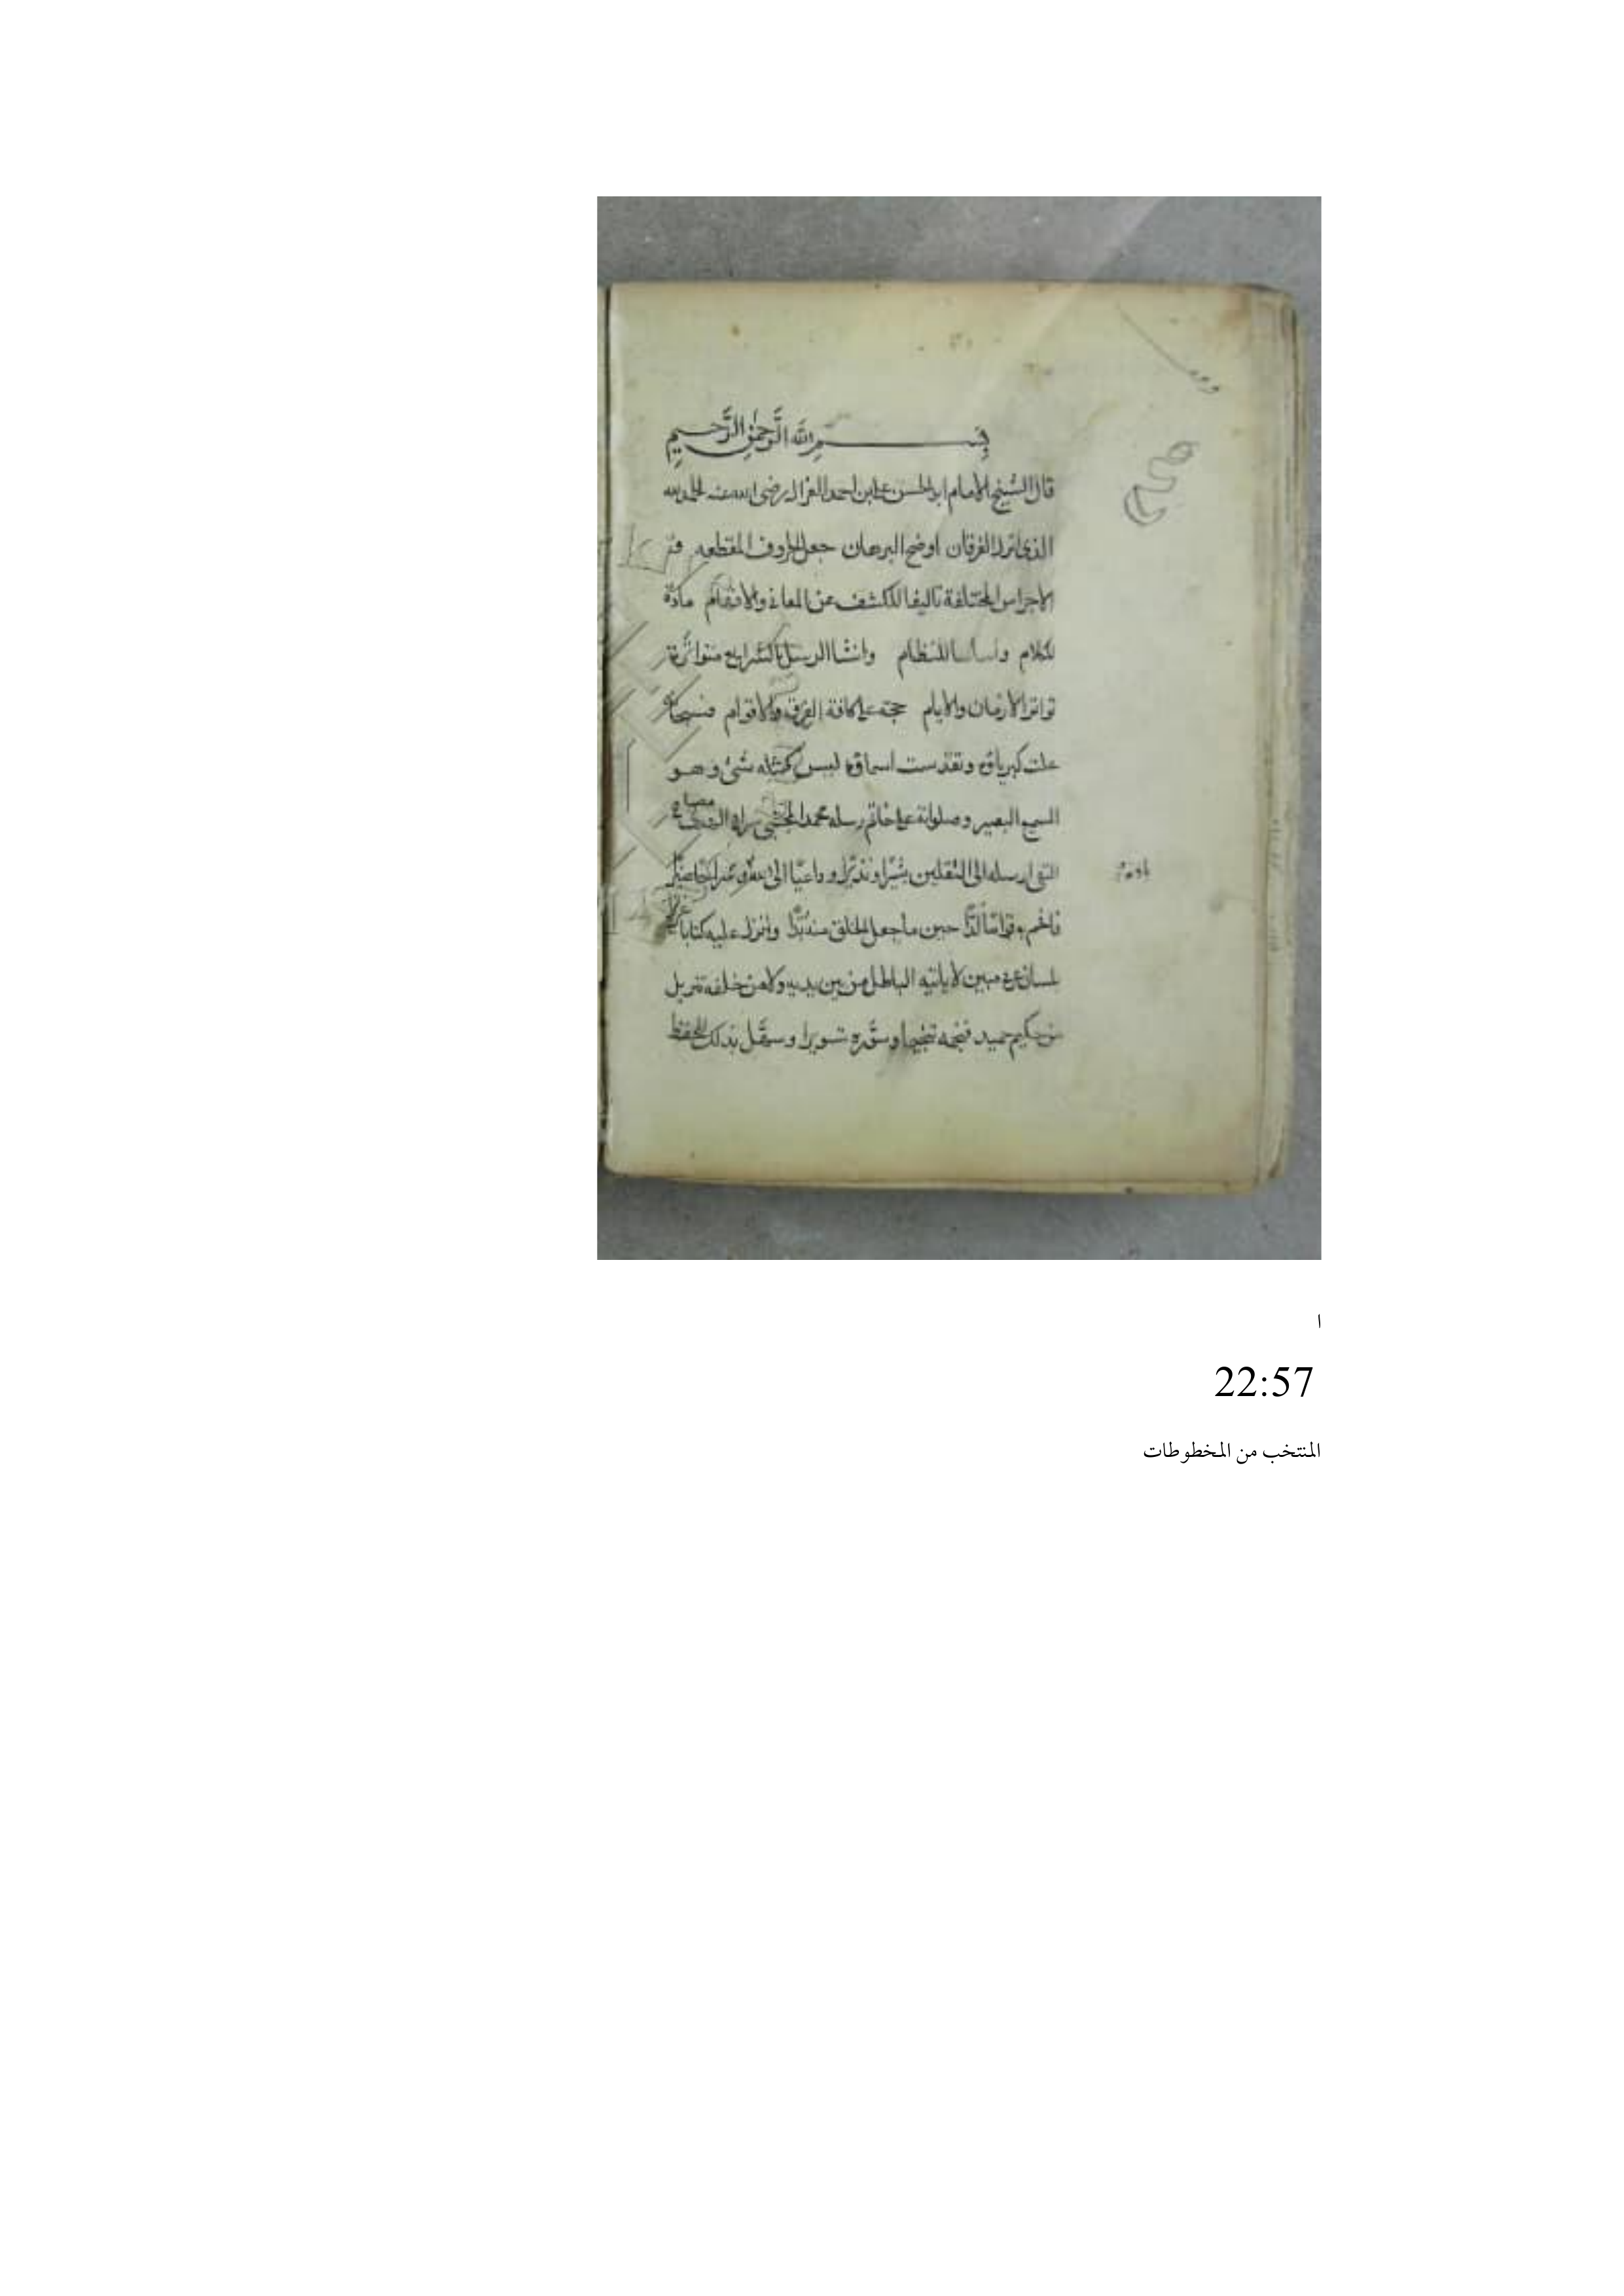 بِسْمِ اللَّهِ الرَّحْمٰنِ الرَّحِيمِ
قال الشيخ الامام ابو الحسن علي بن احمد الغزال رضي الله عنه الحمد لله
الذي انزل الفرقان اوضح البرهان جعل الحروف المقطعه
الاجراس المختلفة تاليفا للكشف عن المعاني والافهام مادة
للكلام واساسا للنظام وانشا الرسل بالشرايع متواترة
تواتر الازمان والايام حجة على كافة الفرق والاقوام فسبحانه
علت كبرياؤه وتقدست اسماؤه ليس كمثله شئ وهو
السميع البصير وصلواته على خاتم رسله محمد المجتبى سراج مصباح
التقى ارسله الى الثقلين بشيرًا ونذيرًا وداعيًا الى
فافحم به قومًا لُدًّا حين ما جعل الخلق وانزل عليه كتابا
بلسان عربي مبين لا ياتيه الباطل من بين يديه ولا من خلفه تنزيل
من حكيم حميد فنجمه تنجيما وسوّره تسويرا وسهّل بذلك للحفظ
ا
22:57
المنتخب من المخطوطات